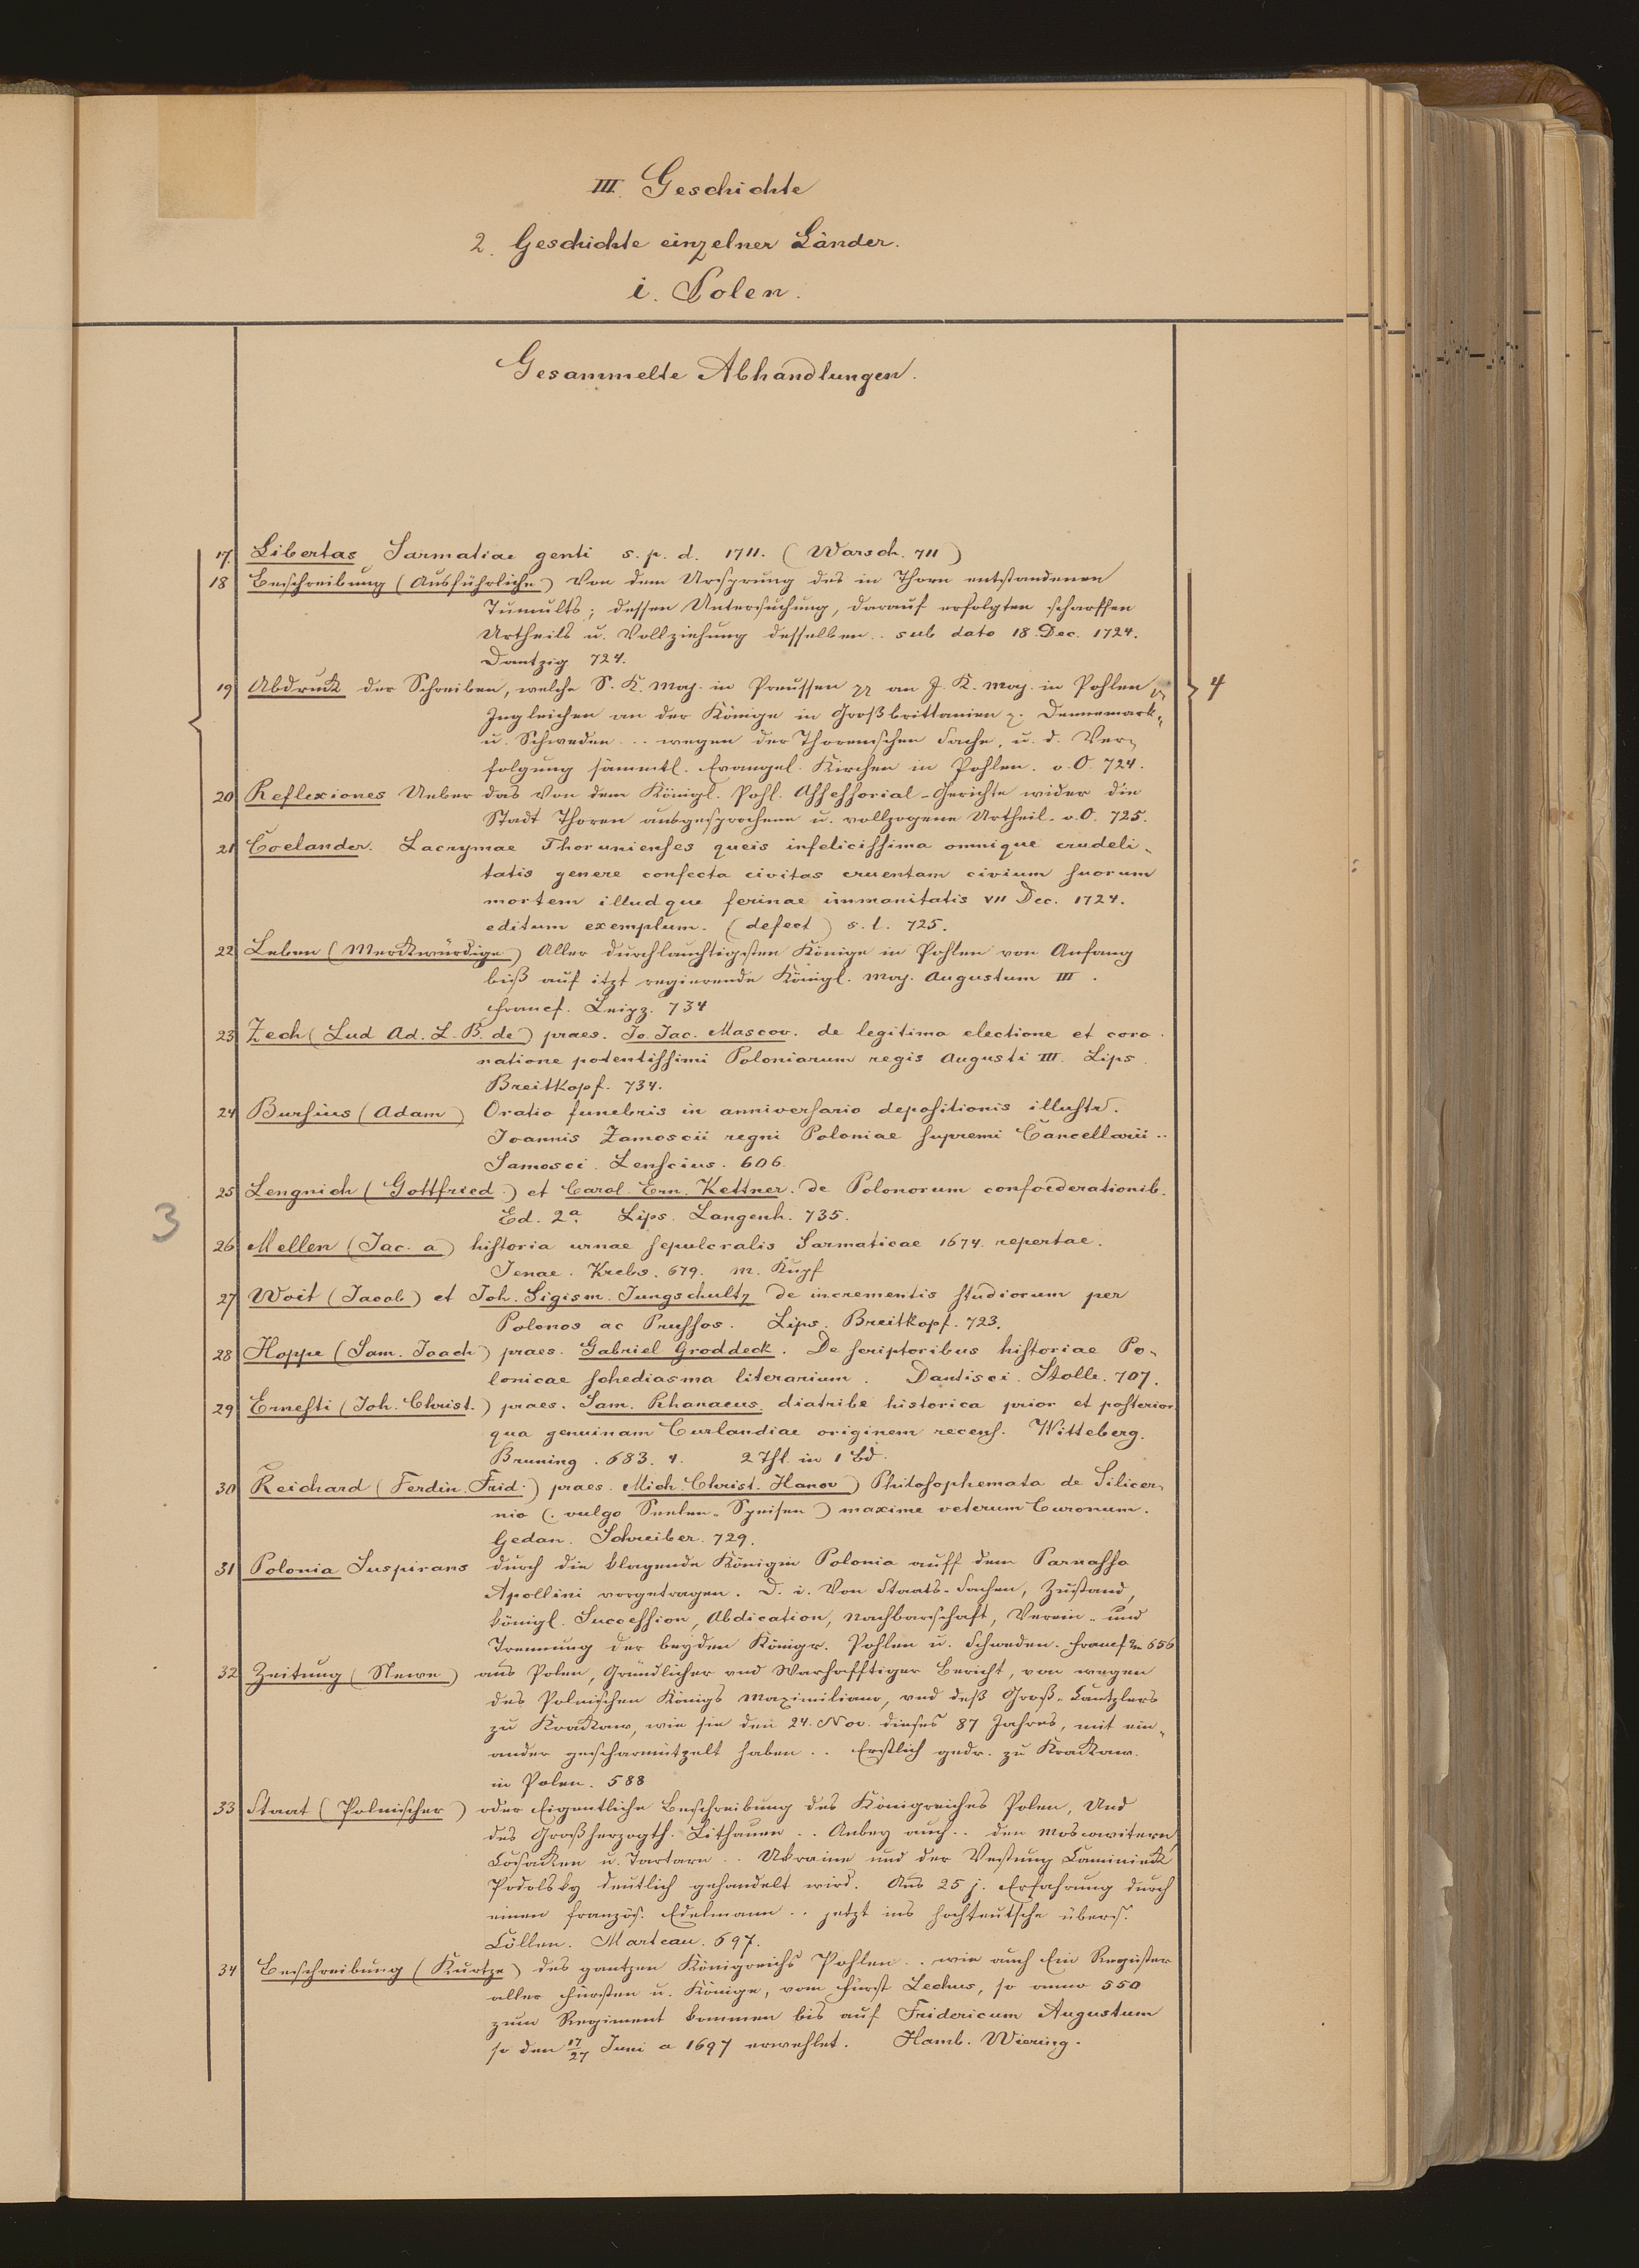 III. Geschichte
2. Geschichte einzelner Länder.
i. Polen.
Gesammelte Abhandlungen.
17. Libertas Sarmatiae genti s. p. d. 1711. (Warsch. 711)
18 Beschreibung (Ausführliche) Von dem Ursprung des in Thorn entstandenen
Tumults; dessen Untersuchung, darauf erfolgten scharffen
Urtheils u. Vollziehung desselben .. sub dato 18. Dec. 1724.
Dantzig 724.
19 Abdruck der Schreiben, welche S. K. Maj. in Preussen an J. K. Maj. in Pohlen
Ingleichen an der Könige in Großbrittanien Dennemark-
u. Schweden ... wegen der Thorenschen Sache, u. d. Ver-
folgung sämmtl. Evangel. Kirchen in Pohlen. o. O. 724.
4
20 Reflexiones Ueber das Von dem Königl. Pohl. Assessorial-Gerichte wider die
Stadt Thoren ausgesprochene u. vollzogene Urtheil. o. O. 725.
21 Coelander. Lacrymae Thorunienses queis infelicissima omnique crudeli-
tatis genere confecta civitas cruentam civium suorum
mortem illudque ferinae immanitatis VII Dec. 1724.
editum exemplum. (defect) s. l. 725.
22 Leben (Merckwürdige) Aller durchlauchtigsten Könige in Pohlen von Anfang
biß auf itzt regierende Königl. Maj. Augustum III.
Francf. Leipz. 734
23 Zech (Lud Ad. L. B. de) praes. Jo. Jac. Mascov. de legitima electione et coro
natione potentissimi Poloniarum regis Augusti III. Lips.
Breitkopf. 734.
24 Bursius (Adam) Oratio funebris in anniversario depositionis illustr.
Joannis Zamoscii regni Poloniae supremi Cancellarii ..
Samosci. Lenscius. 606.
25 Lengnich (Gottfried.) et Carol. Ern. Kettner. de Polonorum confoederationib.
Ed. 2a. Lips. Langenh. 735.
3
26 Mellen (Jac. a) historia urnae sepulcralis Sarmaticae 1674. repertae.
Jenae. Krebs. 679. m. Kupf
27 Woit (Jacob) et Joh. Sigism. Jungschultz de incrementis studiorum per
Polonos ac Prussos. Lips. Breitkopf. 723.
28 Hoppe (Sam. Joach) praes. Gabriel Groddeck. De scriptoribus historiae Po-
lonicae schediasma literarium. Dantisci. Stolle. 707.
29 Ernesti (Joh. Christ.) praes. Sam. Rhanaeus. diatribe historica prior et posterior
qua genuinam Curlandiae originem recens. Witteberg.
Bruning. 683. 4. 2 Thl. in 1 Bd.
30 Reichard (Ferdin. Frid.) praes. Mich. Christ. Hanov) Philosophemata de Silicer-
nio (. vulgo Seelen-Speisen) maxime veterum Curonum.
Gedan. Schreiber. 729.
31 Polonia Suspirans durch die klagende Königin Polonia auff dem Parnasso
Apollini vorgetragen. D. i. Von Staats-Sachen, Zustand,
königl. Succession, Abdication, Nachbarschaft, Verein- und
Trennung der beyden Königr. Pohlen u. Schweden. Francf 656
32 Zeitung (Newe) aus Polen, Gründlicher vnd Warhafftiger Bericht, von wegen
des Polnischen Königs Maximiliano, vnd deß Groß-Cantzlers
zu Krackaw, wie sie den 24. Nov. dieses 87 Jahres, mit ein-
ander gescharmützelt haben .. Erstlich gedr. zu Krackaw.
in Polen. 588
33 Staat (Polnischer) oder Eigentliche Beschreibung des Königreiches Polen, Und
des Großherzogth. Lithauen .. Anbey auch .. den Moscowitern,
Cosacken u. Tartarn .. Ukraine und der Vestung Caminieck
Podolsky deutlich gehandelt wird. Aus 25 j. Erfahrung durch
einen französ. Edelmann .. jetzt ins hochteutsche übers.
Cöllen. Marteau. 697.
34 Beschreibung (Kurtze) des gantzen Königreichs Pohlen .. wie auch Ein Register
aller Fürsten u. Könige, vom Fürst Lechus, so anno 550
zum Regiment kommen bis auf Fridericum Augustum
so den 17/27 Juni a 1697 erwehlet. Hamb. Wiering.